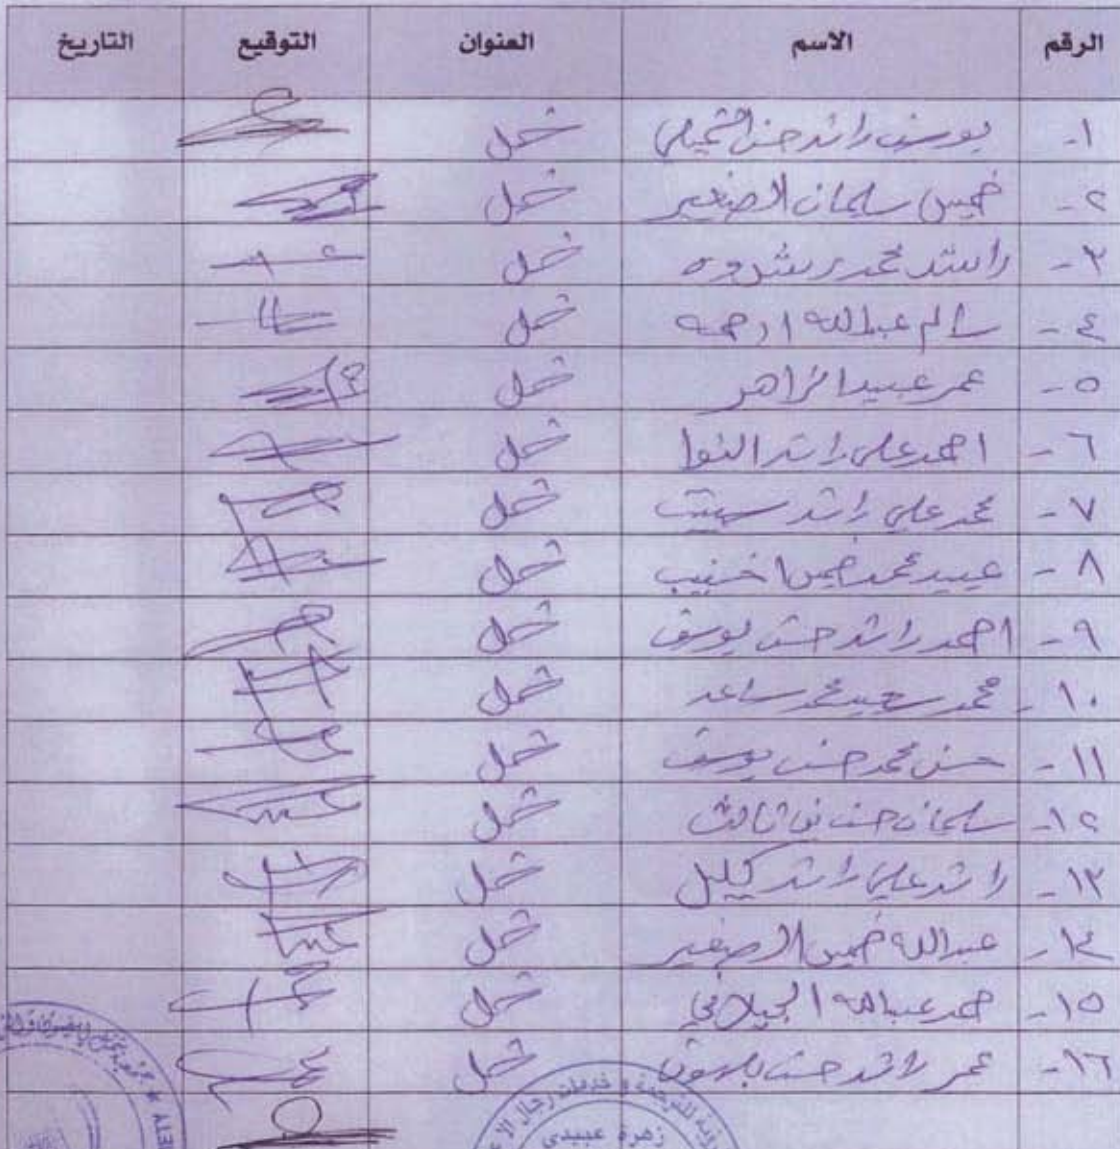 الرقم الاسم العنوان التوقيع التاريخ
١- يوسف راشد حسن الشميلي شمل
٢- خميس سلمان الصغير شمل
٣- راشد محمد شمل
٤- سالم عبدالله ارحمه شمل
٥- عمر عبيد الزاهر شمل
٦- احمد علي راشد شمل
٧- محمد علي راشد شمل
٨- عبيد محمد خميس اخنيب شمل
٩- احمد راشد حسن يوسف شمل
١٠- محمد سعيد محمد ساعد شمل
١١- حسن محمد حسن يوسف شمل
١٢- سلمان حسن شمل
١٣- راشد علي راشد شمل
١٤- عبدالله خميس الصغير شمل
١٥- حمد عبدالله الجيلاني شمل
١٦- عمر راشد حسن شمل
للترجمة و خدمات رجال
زهرة عبيدي